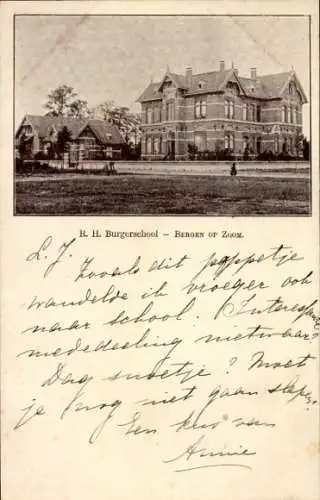 R. H. Burgerschool – BERGEN OP ZOOM.
L. J. Zooals dit poppetje
wandelde ik vroeger ook
naar school. (Interessante
mededeeling nietwaar?
Dag snoetje? Moet
je nog niet gaan slapen
Een kus van
Annie